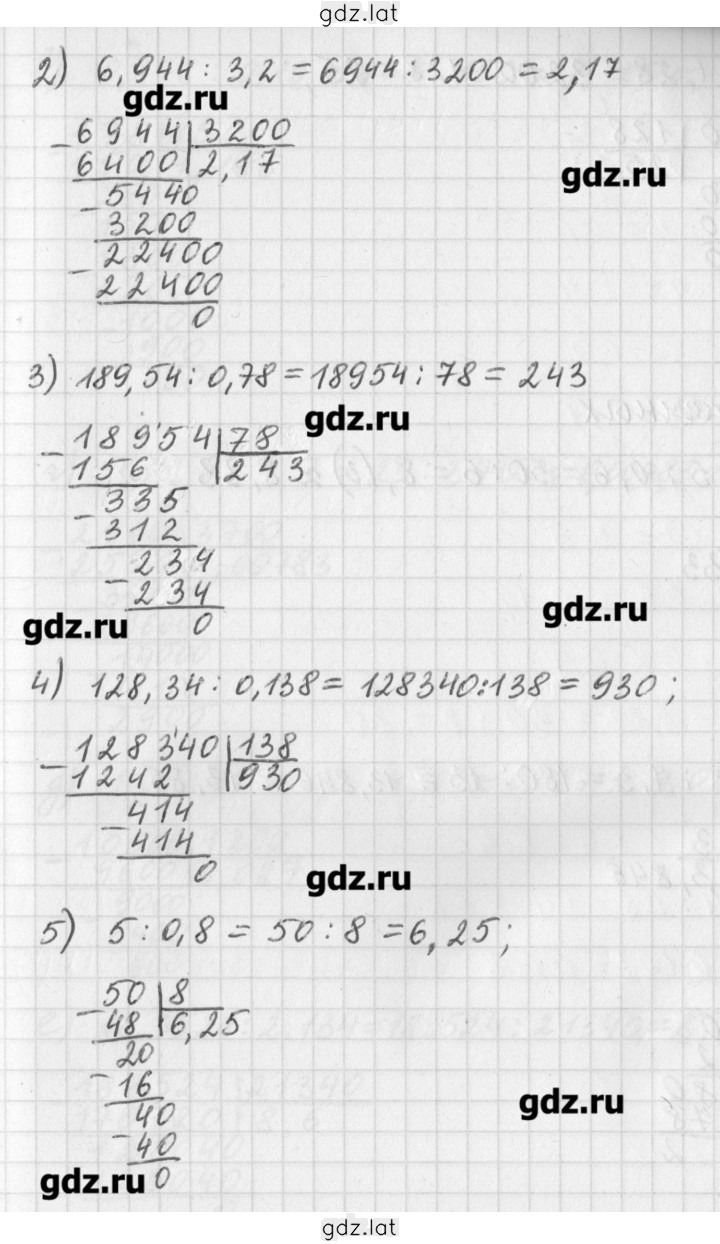 gdz.lat
2) 6,944 : 3,2 = 6944 : 3200 = 2,17
gdz.ru
6944 3200
6400 2,17
gdz.ru
5440
3200
22400
22400
0
3) 189,54 : 0,78 = 18954 : 78 = 243
gdz.ru
18954 78
156 243
335
312
234
234
gdz.ru
gdz.ru
0
4) 128,34 : 0,138 = 128340 : 138 = 930 ;
128340 138
1242 930
414
414
0
gdz.ru
5) 5 : 0,8 = 50 : 8 = 6,25 ;
50 8
48 6,25
20
16
40
gdz.ru
40
gdz.ru
0
gdz.lat